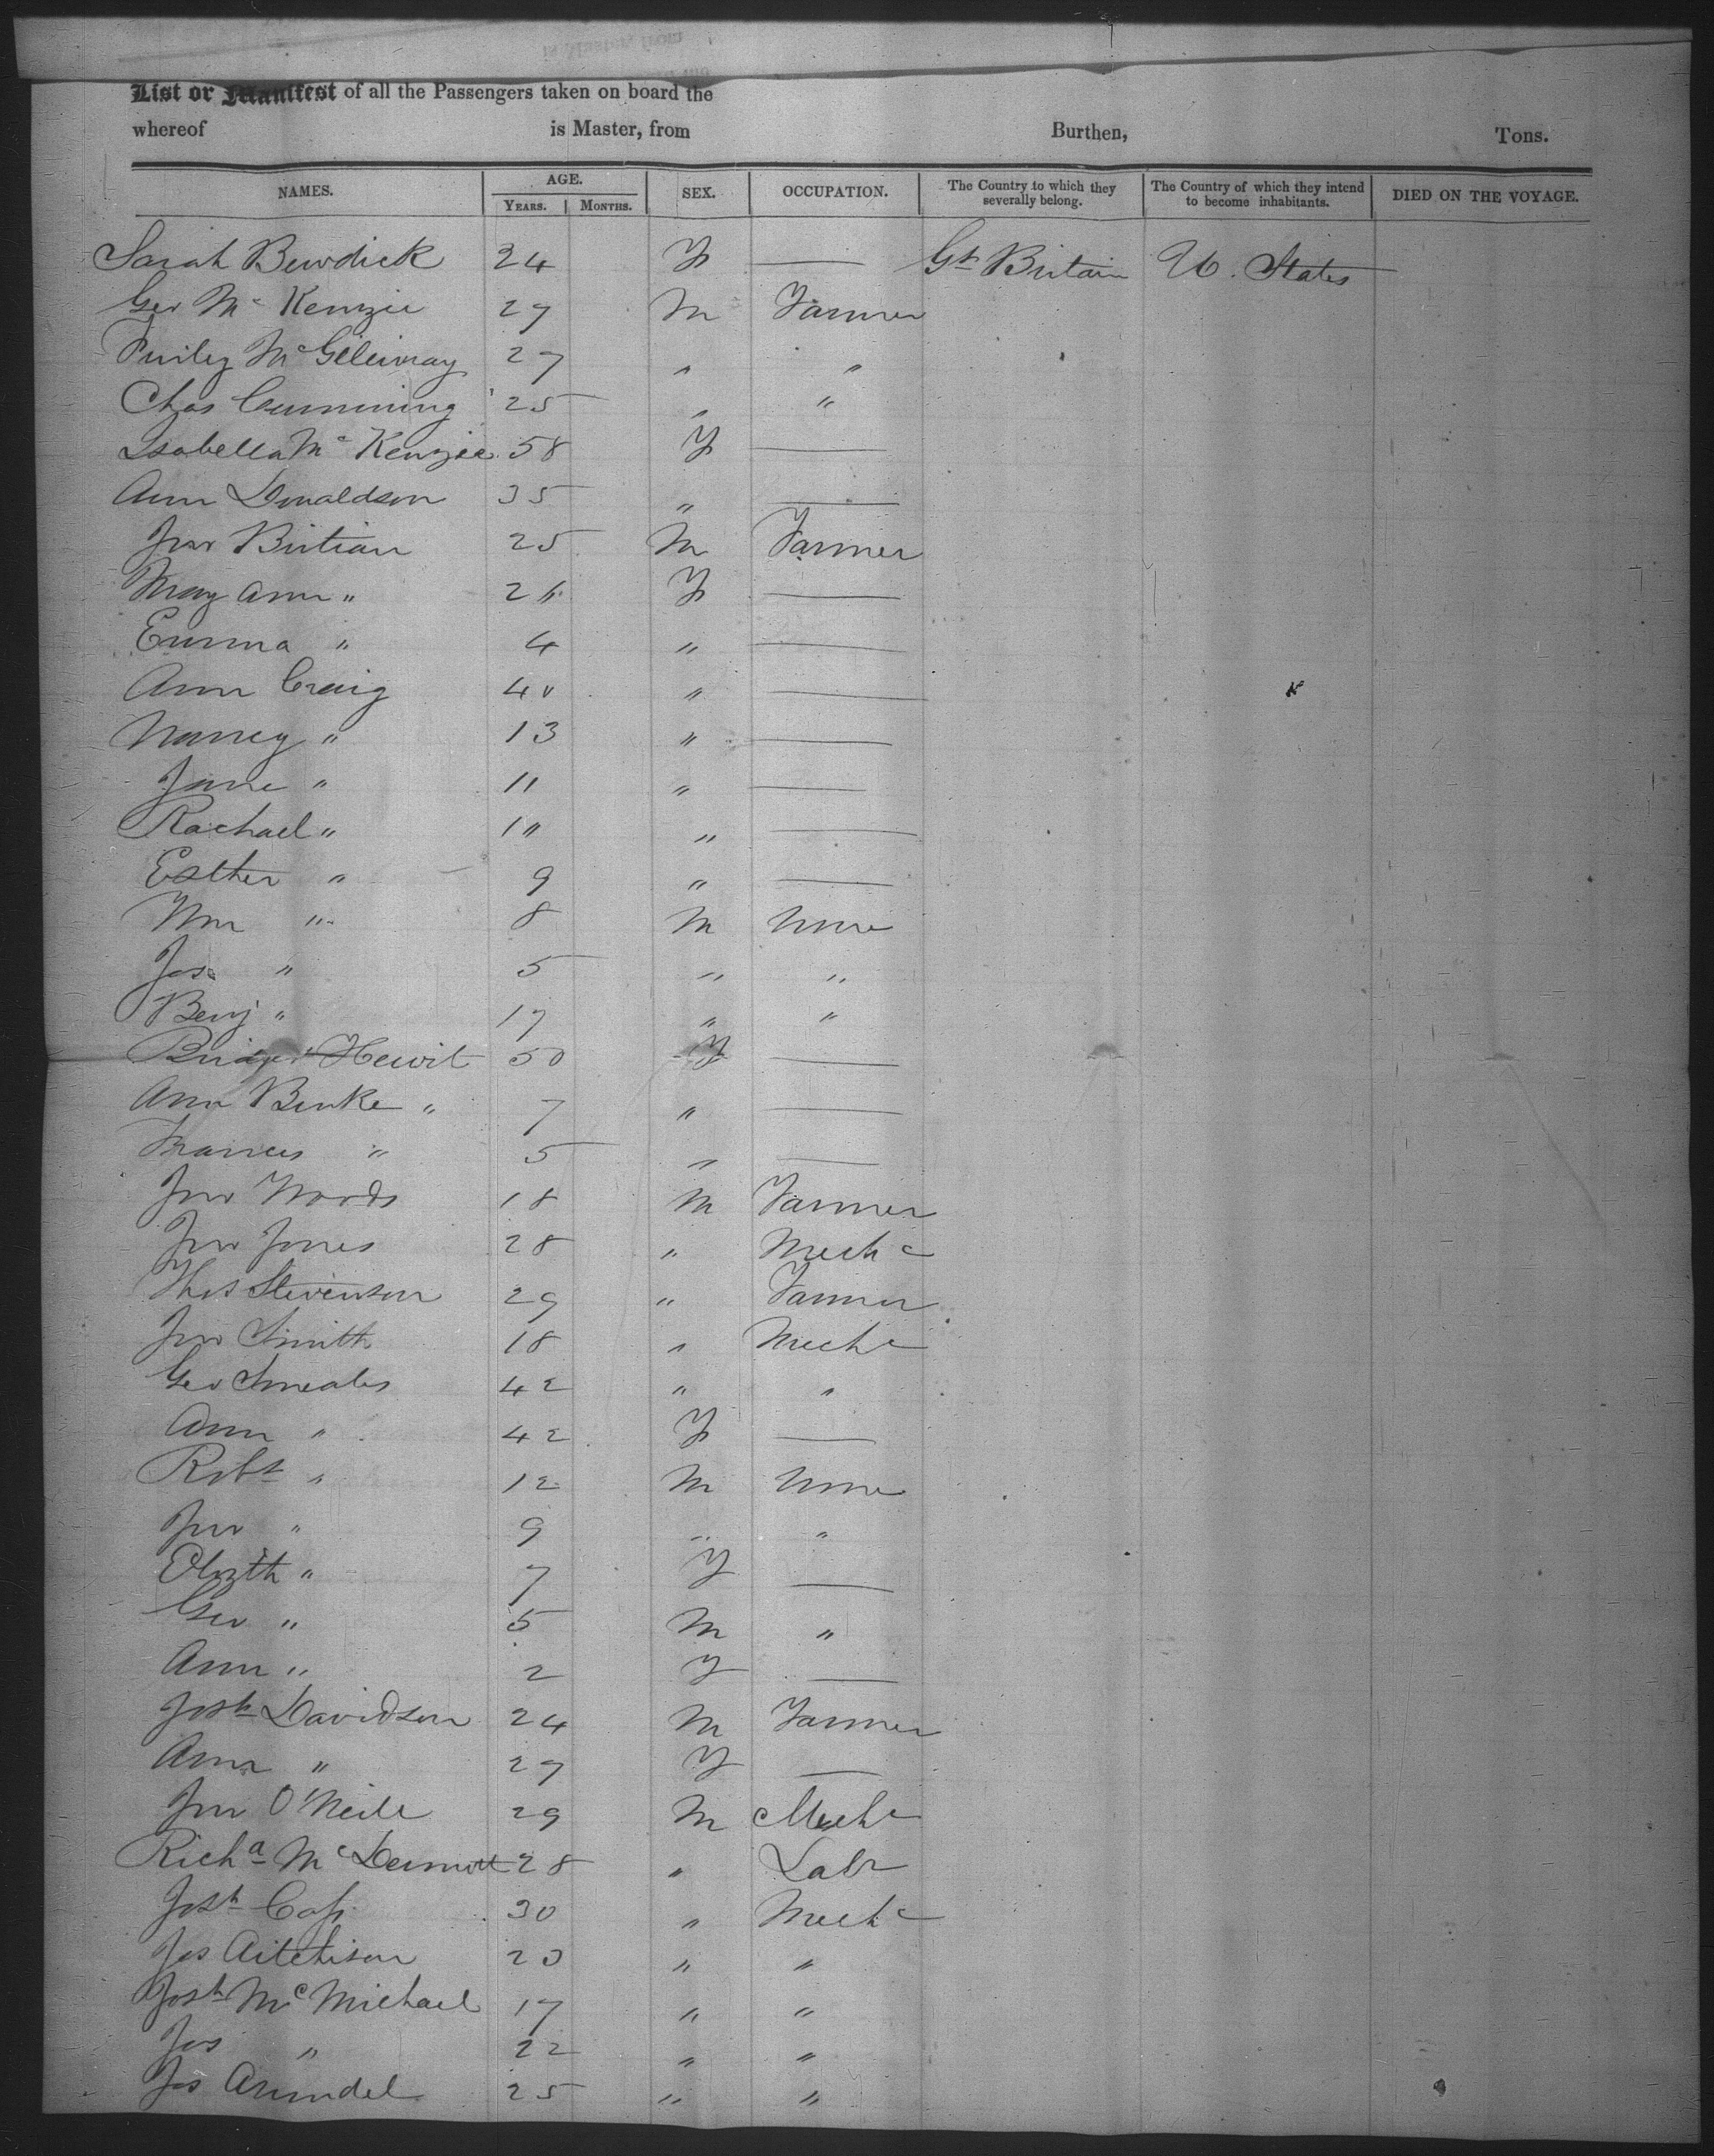 List or Manifest of all the Passengers taken on board the
whereof is Master, from Burthen, Tons.
NAMES. AGE. SEX. OCCUPATION. The Country to which they severally belong. The Country of which they intend to become inhabitants. DIED ON THE VOYAGE.
YEARS. MONTHS.
Sarah 24 F — Gt Britain U. States
Geo Mc Kenzie 27 M Farmer
27 " "
Chas Cumming 25 " "
Isabella Mc Kenzie 58 F —
Ann Donaldson 35 " —
Jno 25 M Farmer
Mary Ann " F —
Emma " 4 " —
Ann Craig 40 " —
Nancy " 13 " —
Jane " 11 " —
Rachael " " —
Esther " 9 " —
Wm " 8 M None
Jas " 5 " "
Benj " 17 " "
Bridget Hewit 50 F —
Ann Burke " 7 " —
Frances " 5 " —
Jno Woods 18 M Farmer
Jno Jones 28 " Mechc
Thos Stevenson 29 " Farmer
Jno Smith 18 " Mechc
Geo Smeales 42 " "
Ann " 42 F —
Robt " 12 M None
Jno " 9 " "
Elizth " 7 F —
Geo " 5 M "
Ann " 2 F —
Josh Davidson 24 M Farmer
Ann " 27 F —
Jno O'Neile 29 M Mechc
Richd Mc Dermott 28 " Labr
Josh 30 " Mechc
Jas Aitchison " "
Josh Mc Michael 17 " "
Jas " 22 " "
Jas Arundel 25 " "